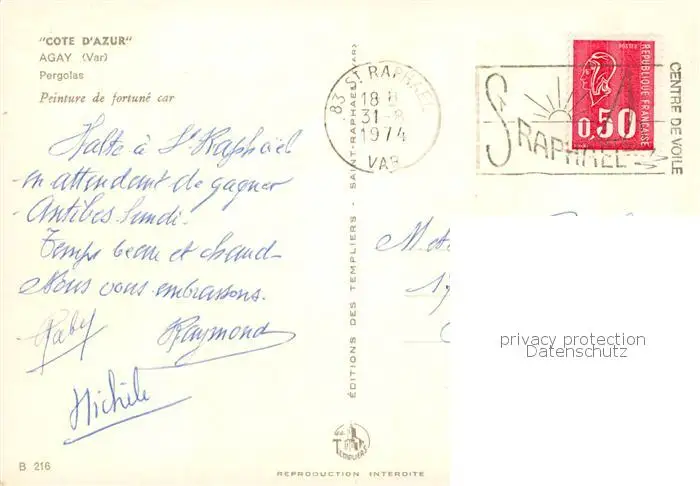 "COTE D'AZUR"
AGAY (Var)
Pergolas
Peinture de fortuné car
Halte à St Raphaël
en attendant de gagner
Antibes lundi.
Temps beau et chaud
Nous vous embrassons.
Gaby Raymond
Michèle
B 216
EDITIONS DES TEMPLIERS - SAINT-RAPHAEL (VAR)
83 ST RAPHAEL
18 H
31-8
1974
VAR
ST RAPHAEL
CENTRE DE VOILE
POSTES
REPUBLIQUE FRANÇAISE
0,50
TEMPLIERS
REPRODUCTION INTERDITE
privacy protection
Datenschutz